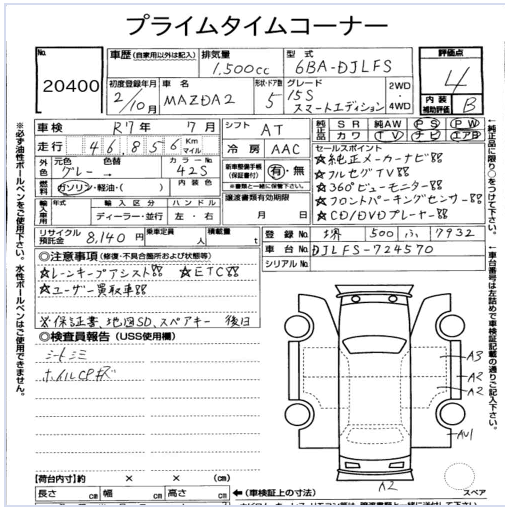 プライムタイムコーナー
No. 20400
車歴 (自家用以外は記入)
排気量 1,500cc
型式 6BA-DJLFS
評価点 4
初度登録年月 2/10月
車名 MAZDA2
形状・ドア数 5
グレード 15S スマートエディション
2WD・4WD
内装補助評価 B
車検 R7年 7月
シフト AT
純正品 SR 純AW PS PW
カワ TV ナビ エアB
走行 46,856 Km マイル
冷房 AAC
セールスポイント
☆純正メーカーナビ
☆フルセグTV
☆360°ビューモニター
☆フロントパーキングセンサー
☆CD/DVDプレーヤー
外色 元色 グレー 色替 →
カラーNo. 42S
新車整備手帳(保証書付) 有・無
※書類と一緒に保管下さい。
燃料 ガソリン・軽油・( )
内装色
輸入車用 年式 輸入区分 ディーラー・並行 ハンドル 左・右
譲渡書類有効期限 月 日
リサイクル預託金 8,140 円
乗車定員 人
積載量 t
登録No. 堺 500 ふ 7932
車台No. DJLFS-724570
シリアルNo.
◎注意事項 (修復・不具合箇所および状態等)
☆レーンキープアシスト ☆ETC
☆ユーザー買取車
※保証書、地図SD、スペアキー 後日
◎検査員報告 (USS使用欄)
シートシミ
ホイルCPキズ
A3
A2
A2
AU1
A2
スペア
【荷台内寸】約 × × (cm)
長さ cm 幅 cm 高さ cm
←(車検証上の寸法)
※必ず油性ボールペンをご使用下さい。水性ボールペンはご使用できません。
←純正品に限り○をつけて下さい。
←車台番号は左詰めで車検証記載の通りご記入下さい。